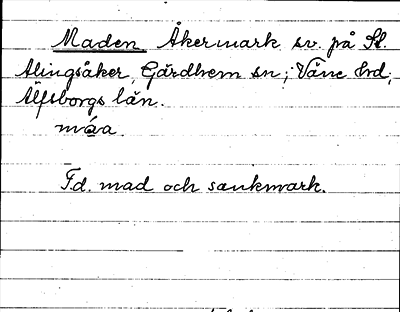 Maden Åkermark sv. på St.
Alingsåker, Gärdhem sn; Väne hd,
Älfsborgs län.
måa.
F.d. mad och sankmark.